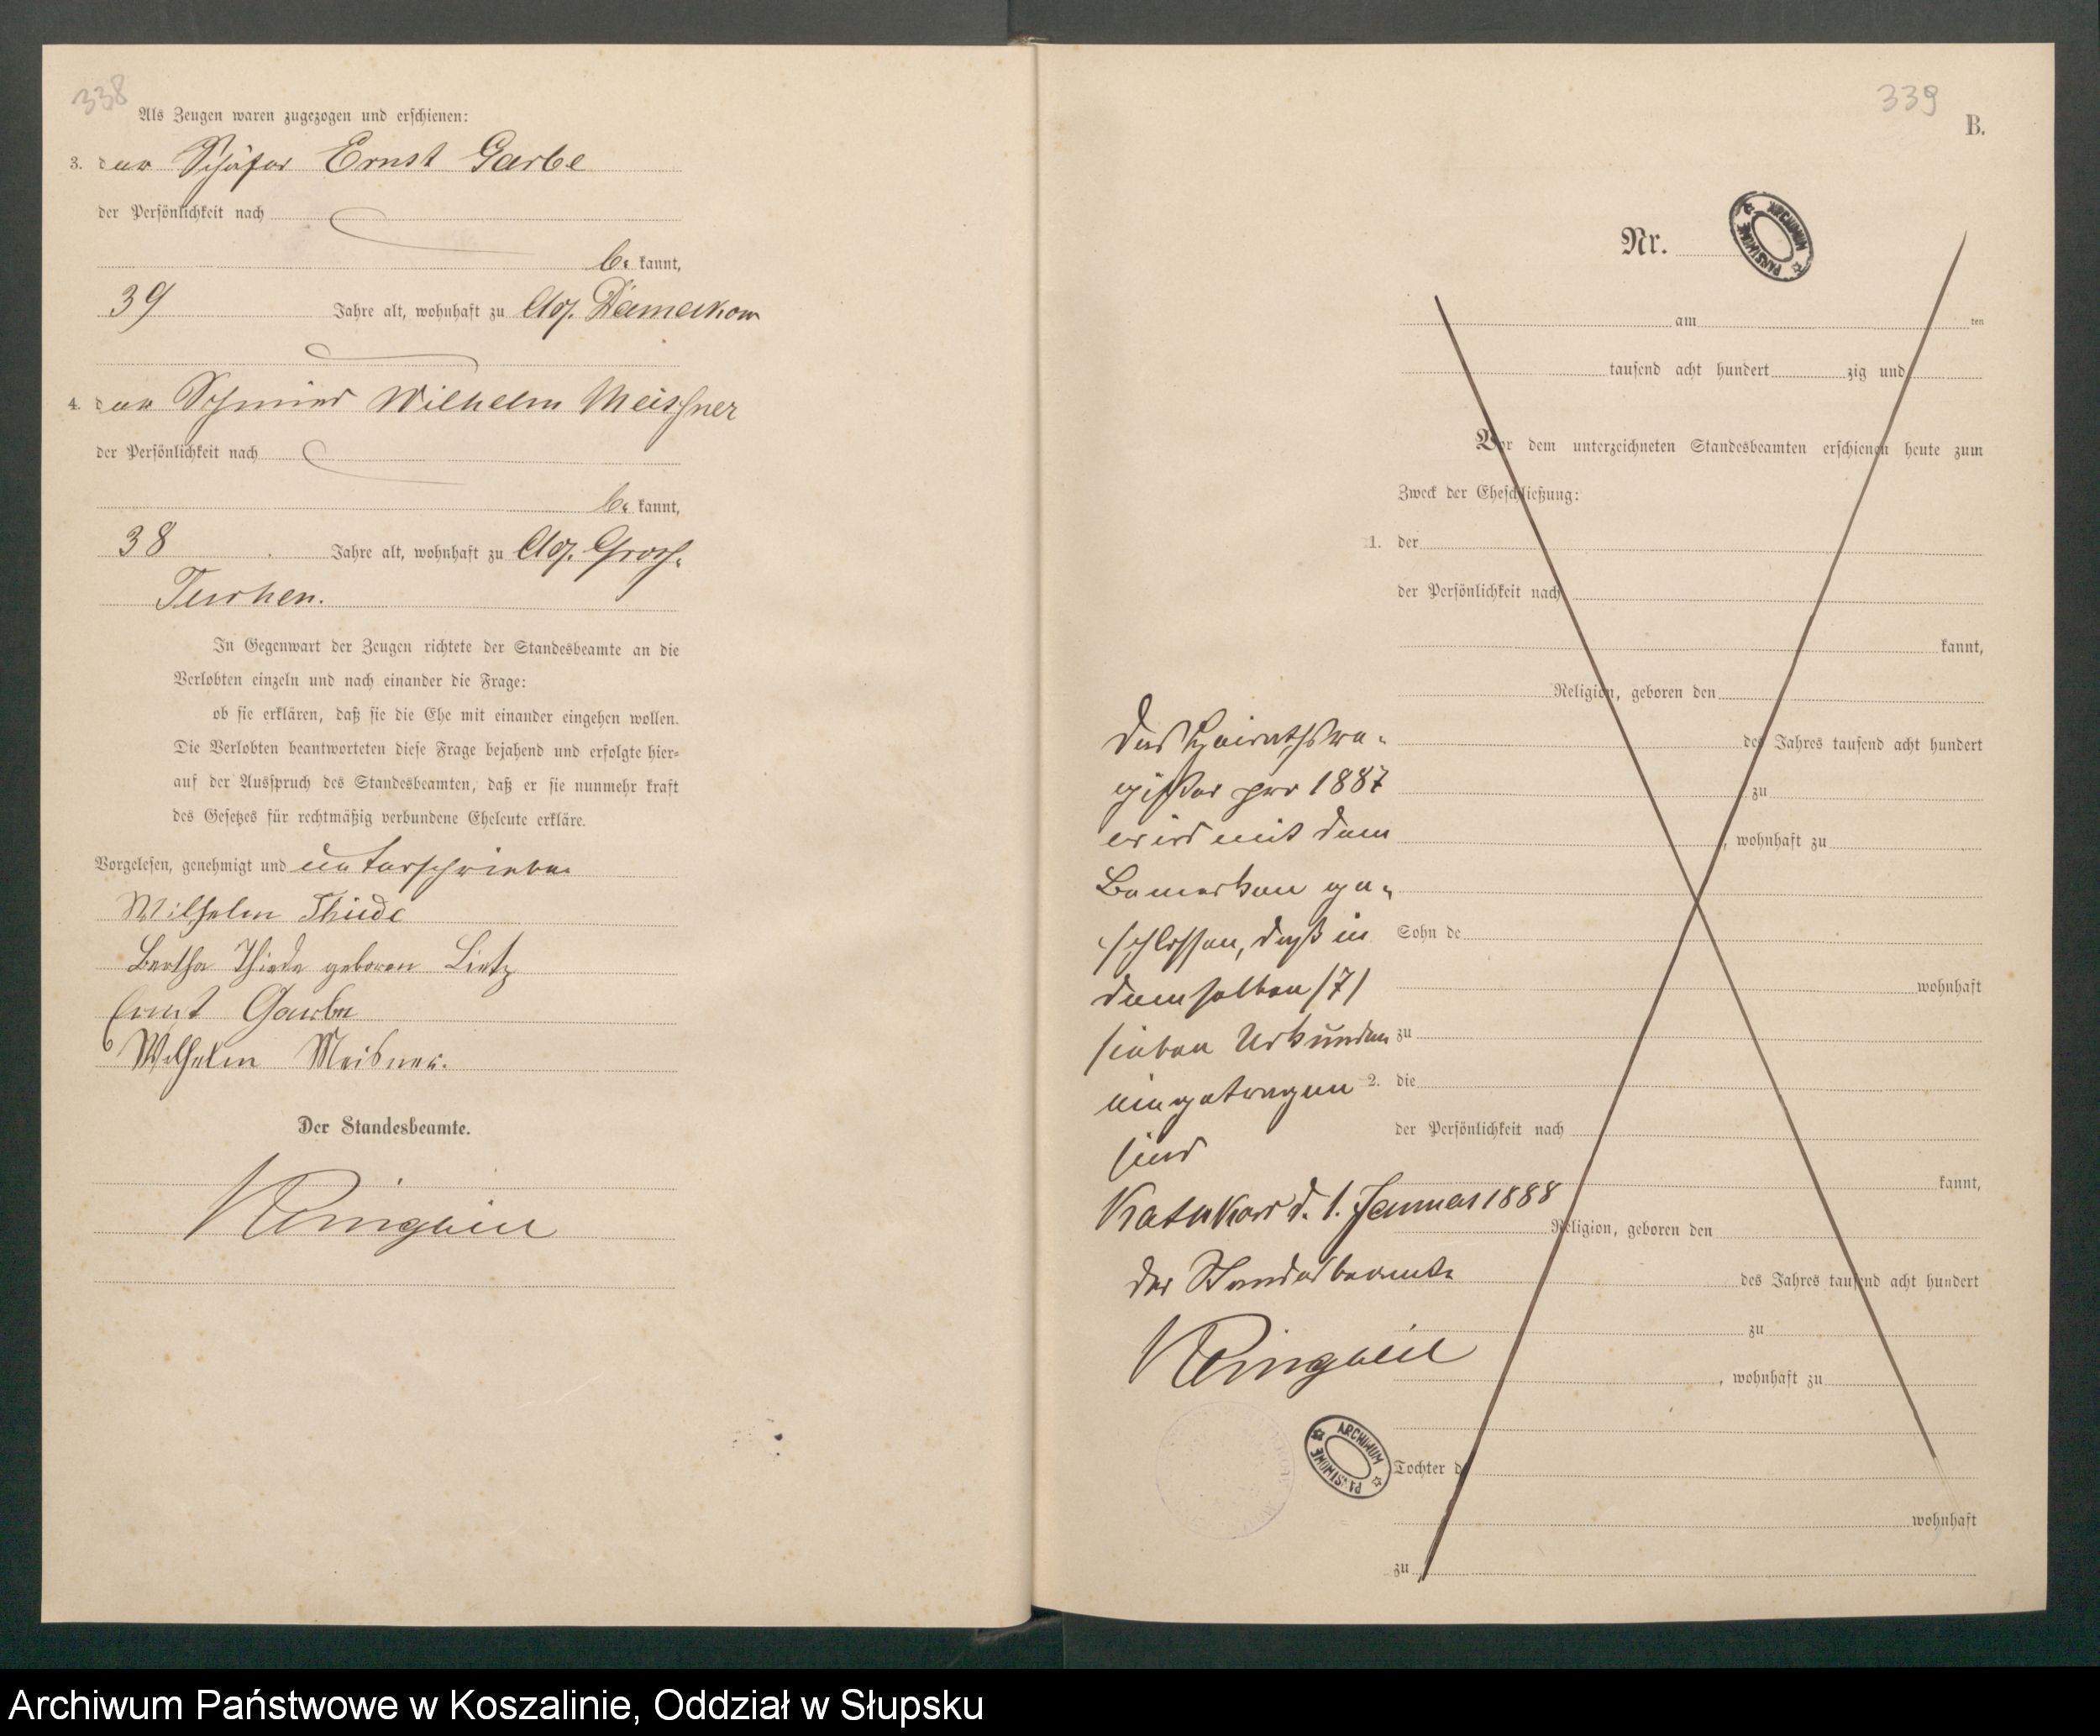 338
Als Zeugen waren zugezogen und erschienen:
3. der Schäfer Ernst Garbe
der Persönlichkeit nach
be kannt,
39 Jahre alt, wohnhaft zu
4. der Schmied Wilhelm Meissner
der Persönlichkeit nach
be kannt,
38 Jahre alt, wohnhaft zu
In Gegenwart der Zeugen richtete der Standesbeamte an die
Verlobten einzeln und nach einander die Frage:
ob sie erklären, daß sie die Ehe mit einander eingehen wollen.
Die Verlobten beantworteten diese Frage bejahend und erfolgte hier-
auf der Ausspruch des Standesbeamten, daß er sie nunmehr kraft
des Gesetzes für rechtmäßig verbundene Eheleute erkläre.
Vorgelesen, genehmigt und unterschrieben
Wilhelm Thiede
Bertha Thiede geboren Lietz
Ernst Garbe
Wilhelm Meisner.
Der Standesbeamte.
339
B.
Nr.
ARCHIWUM PAŃSTWOWE
am ten
tausend acht hundert zig und
Vor dem unterzeichneten Standesbeamten erschienen heute zum
Zweck der Eheschließung:
1. der
der Persönlichkeit nach
kannt,
Religion, geboren den
des Jahres tausend acht hundert
zu
, wohnhaft zu
Sohn de
wohnhaft
zu
2. die
der Persönlichkeit nach
kannt,
Religion, geboren den
des Jahres tausend acht hundert
zu
, wohnhaft zu
Tochter de
wohnhaft
zu
Das Heirathsre-
gister pro 1887
wird mit dem
Bemerken ge-
schlossen, daß in
demselben /7/
sieben Urkunden
eingetragen
sind
d. 1. Januar 1888
Der Standesbeamte
ARCHIWUM PAŃSTWOWE
Archiwum Państwowe w Koszalinie, Oddział w Słupsku